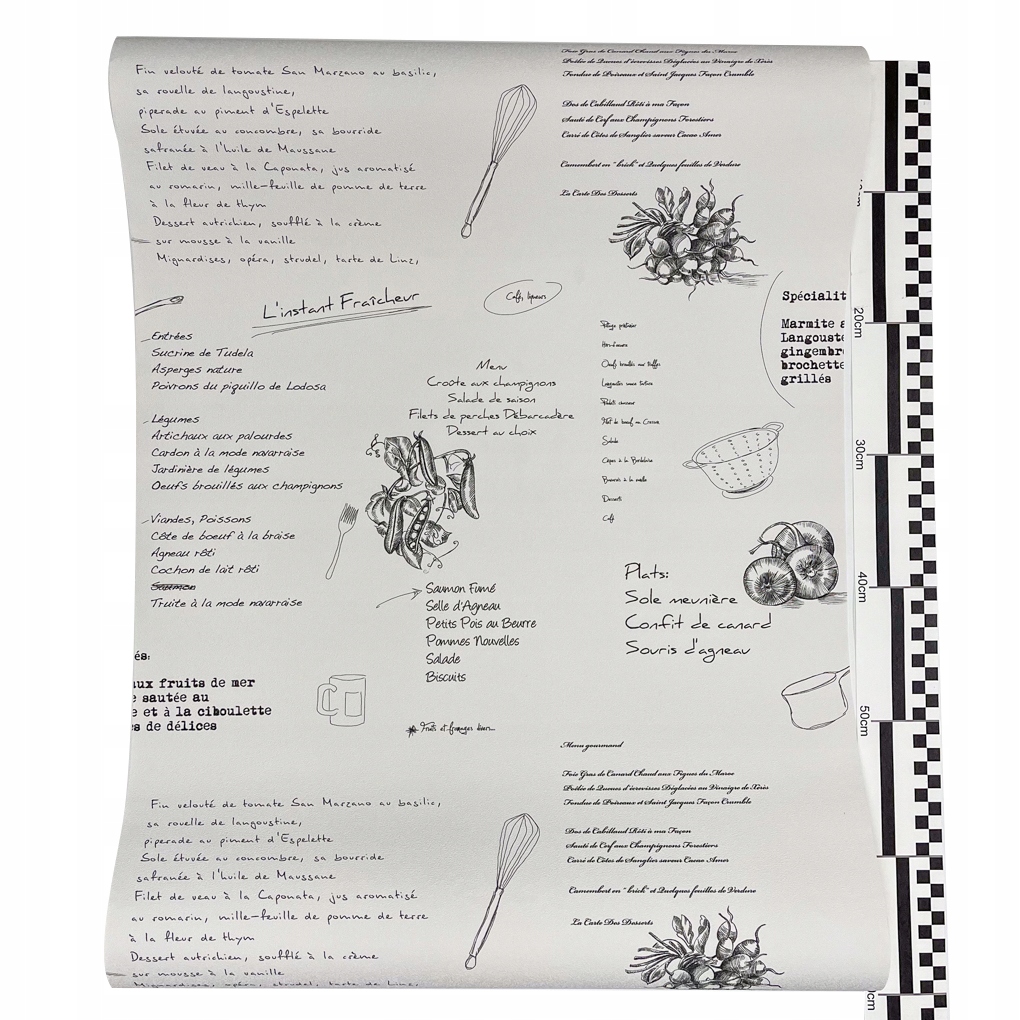 Fin velouté de tomate San Marzano au basilic,
sa rouelle de langoustine,
piperade au piment d'Espelette
Sole étuvée au concombre, sa bourride
safranée à l'huile de Maussane
Filet de veau à la Caponata, jus aromatisé
au romarin, mille-feuille de pomme de terre
à la fleur de thym
Dessert autrichien, soufflé à la crème
sur mousse à la vanille
Mignardises, opéra, strudel, tarte de Linz,
Foie Gras de Canard Chaud aux Figues du Maroc
Poêlée de Queues d'écrevisses Déglacées au Vinaigre de Xérès
Fondue de Poireaux et Saint Jacques Façon Crumble
Dos de Cabillaud Rôti à ma Façon
Sauté de Cerf aux Champignons Forestiers
Carré de Côtes de Sanglier saveur Cacao Amer
Camembert en "brick" et Quelques feuilles de Verdure
La Carte Des Desserts
L'instant Fraîcheur
Café, liqueurs
Entrées
Sucrine de Tudela
Asperges nature
Poivrons du piquillo de Lodosa
Légumes
Artichaux aux palourdes
Cardon à la mode navarraise
Jardinière de légumes
Oeufs brouillés aux champignons
Viandes, Poissons
Côte de boeuf à la braise
Agneau rôti
Cochon de lait rôti
Saumon
Truite à la mode navarraise
Menu
Croûte aux champignons
Salade de saison
Filets de perches Débarcadère
Dessert au choix
Potage printanier
Hors-d'oeuvre
Oeufs brouillés aux truffes
Langouste sauce tartare
Poulets chasseur
Filet de boeuf en
Salade
Cèpes à la Bordelaise
Desserts
Café
Spécialit
Marmite a
Langouste
gingembre
brochette
grillés
Saumon Fumé
Selle d'Agneau
Petits Pois au Beurre
Pommes Nouvelles
Salade
Biscuits
Fruits et fromages divers...
Plats:
Sole meunière
Confit de canard
Souris d'agneau
és:
aux fruits de mer
e sautée au
e et à la ciboulette
s de délices
Menu gourmand
Foie Gras de Canard Chaud aux Figues du Maroc
Poêlée de Queues d'écrevisses Déglacées au Vinaigre de Xérès
Fondue de Poireaux et Saint Jacques Façon Crumble
Dos de Cabillaud Rôti à ma Façon
Sauté de Cerf aux Champignons Forestiers
Carré de Côtes de Sanglier saveur Cacao Amer
Camembert en "brick" et Quelques feuilles de Verdure
La Carte Des Desserts
Fin velouté de tomate San Marzano au basilic,
sa rouelle de langoustine,
piperade au piment d'Espelette
Sole étuvée au concombre, sa bourride
safranée à l'huile de Maussane
Filet de veau à la Caponata, jus aromatisé
au romarin, mille-feuille de pomme de terre
à la fleur de thym
Dessert autrichien, soufflé à la crème
sur mousse à la vanille
Mignardises, opéra, strudel, tarte de Linz,
20cm
30cm
40cm
50cm
0cm